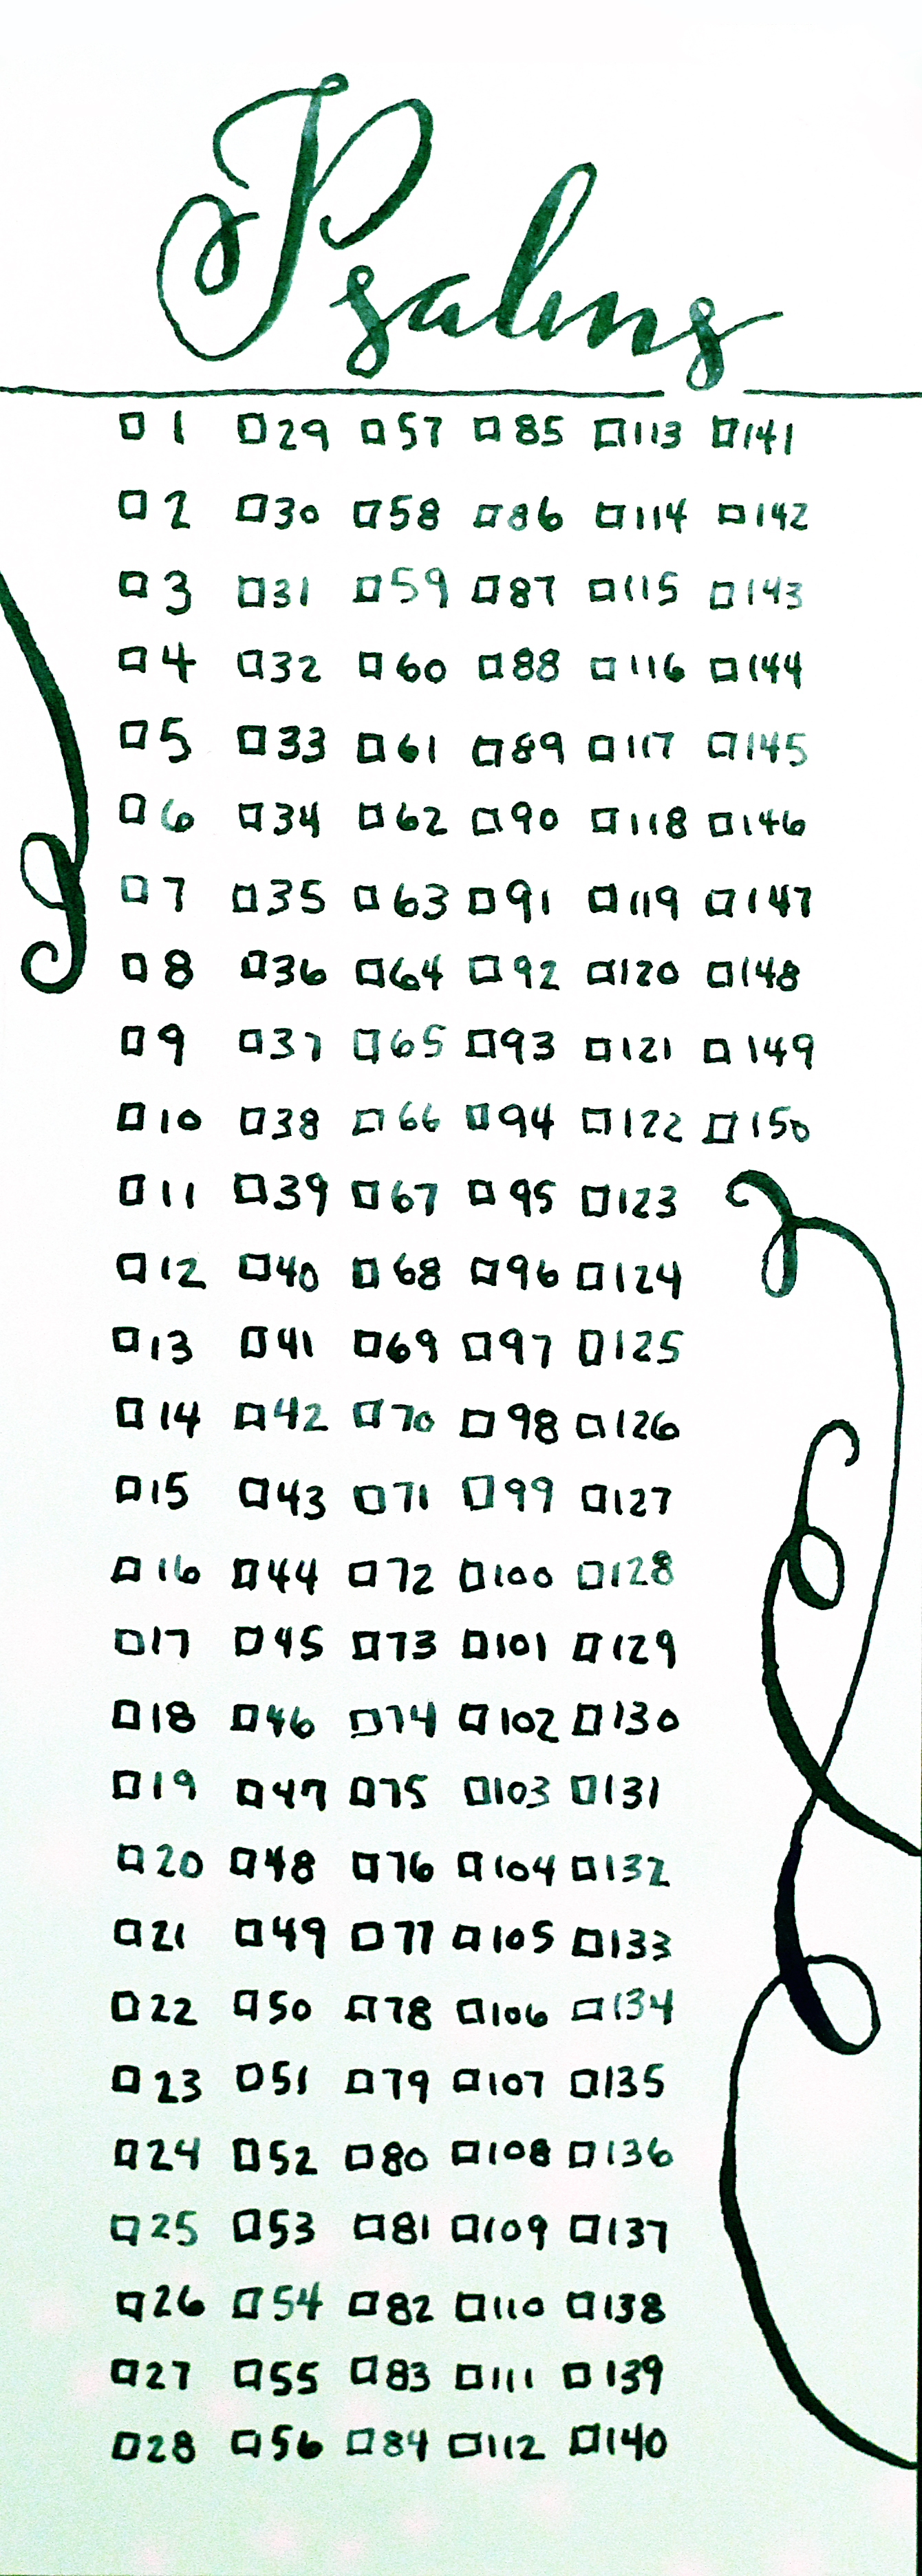 Psalms
□ 1 □ 29 □ 57 □ 85 □ 113 □ 141
□ 2 □ 30 □ 58 □ 86 □ 114 □ 142
□ 3 □ 31 □ 59 □ 87 □ 115 □ 143
□ 4 □ 32 □ 60 □ 88 □ 116 □ 144
□ 5 □ 33 □ 61 □ 89 □ 117 □ 145
□ 6 □ 34 □ 62 □ 90 □ 118 □ 146
□ 7 □ 35 □ 63 □ 91 □ 119 □ 147
□ 8 □ 36 □ 64 □ 92 □ 120 □ 148
□ 9 □ 37 □ 65 □ 93 □ 121 □ 149
□ 10 □ 38 □ 66 □ 94 □ 122 □ 150
□ 11 □ 39 □ 67 □ 95 □ 123
□ 12 □ 40 □ 68 □ 96 □ 124
□ 13 □ 41 □ 69 □ 97 □ 125
□ 14 □ 42 □ 70 □ 98 □ 126
□ 15 □ 43 □ 71 □ 99 □ 127
□ 16 □ 44 □ 72 □ 100 □ 128
□ 17 □ 45 □ 73 □ 101 □ 129
□ 18 □ 46 □ 74 □ 102 □ 130
□ 19 □ 47 □ 75 □ 103 □ 131
□ 20 □ 48 □ 76 □ 104 □ 132
□ 21 □ 49 □ 77 □ 105 □ 133
□ 22 □ 50 □ 78 □ 106 □ 134
□ 23 □ 51 □ 79 □ 107 □ 135
□ 24 □ 52 □ 80 □ 108 □ 136
□ 25 □ 53 □ 81 □ 109 □ 137
□ 26 □ 54 □ 82 □ 110 □ 138
□ 27 □ 55 □ 83 □ 111 □ 139
□ 28 □ 56 □ 84 □ 112 □ 140